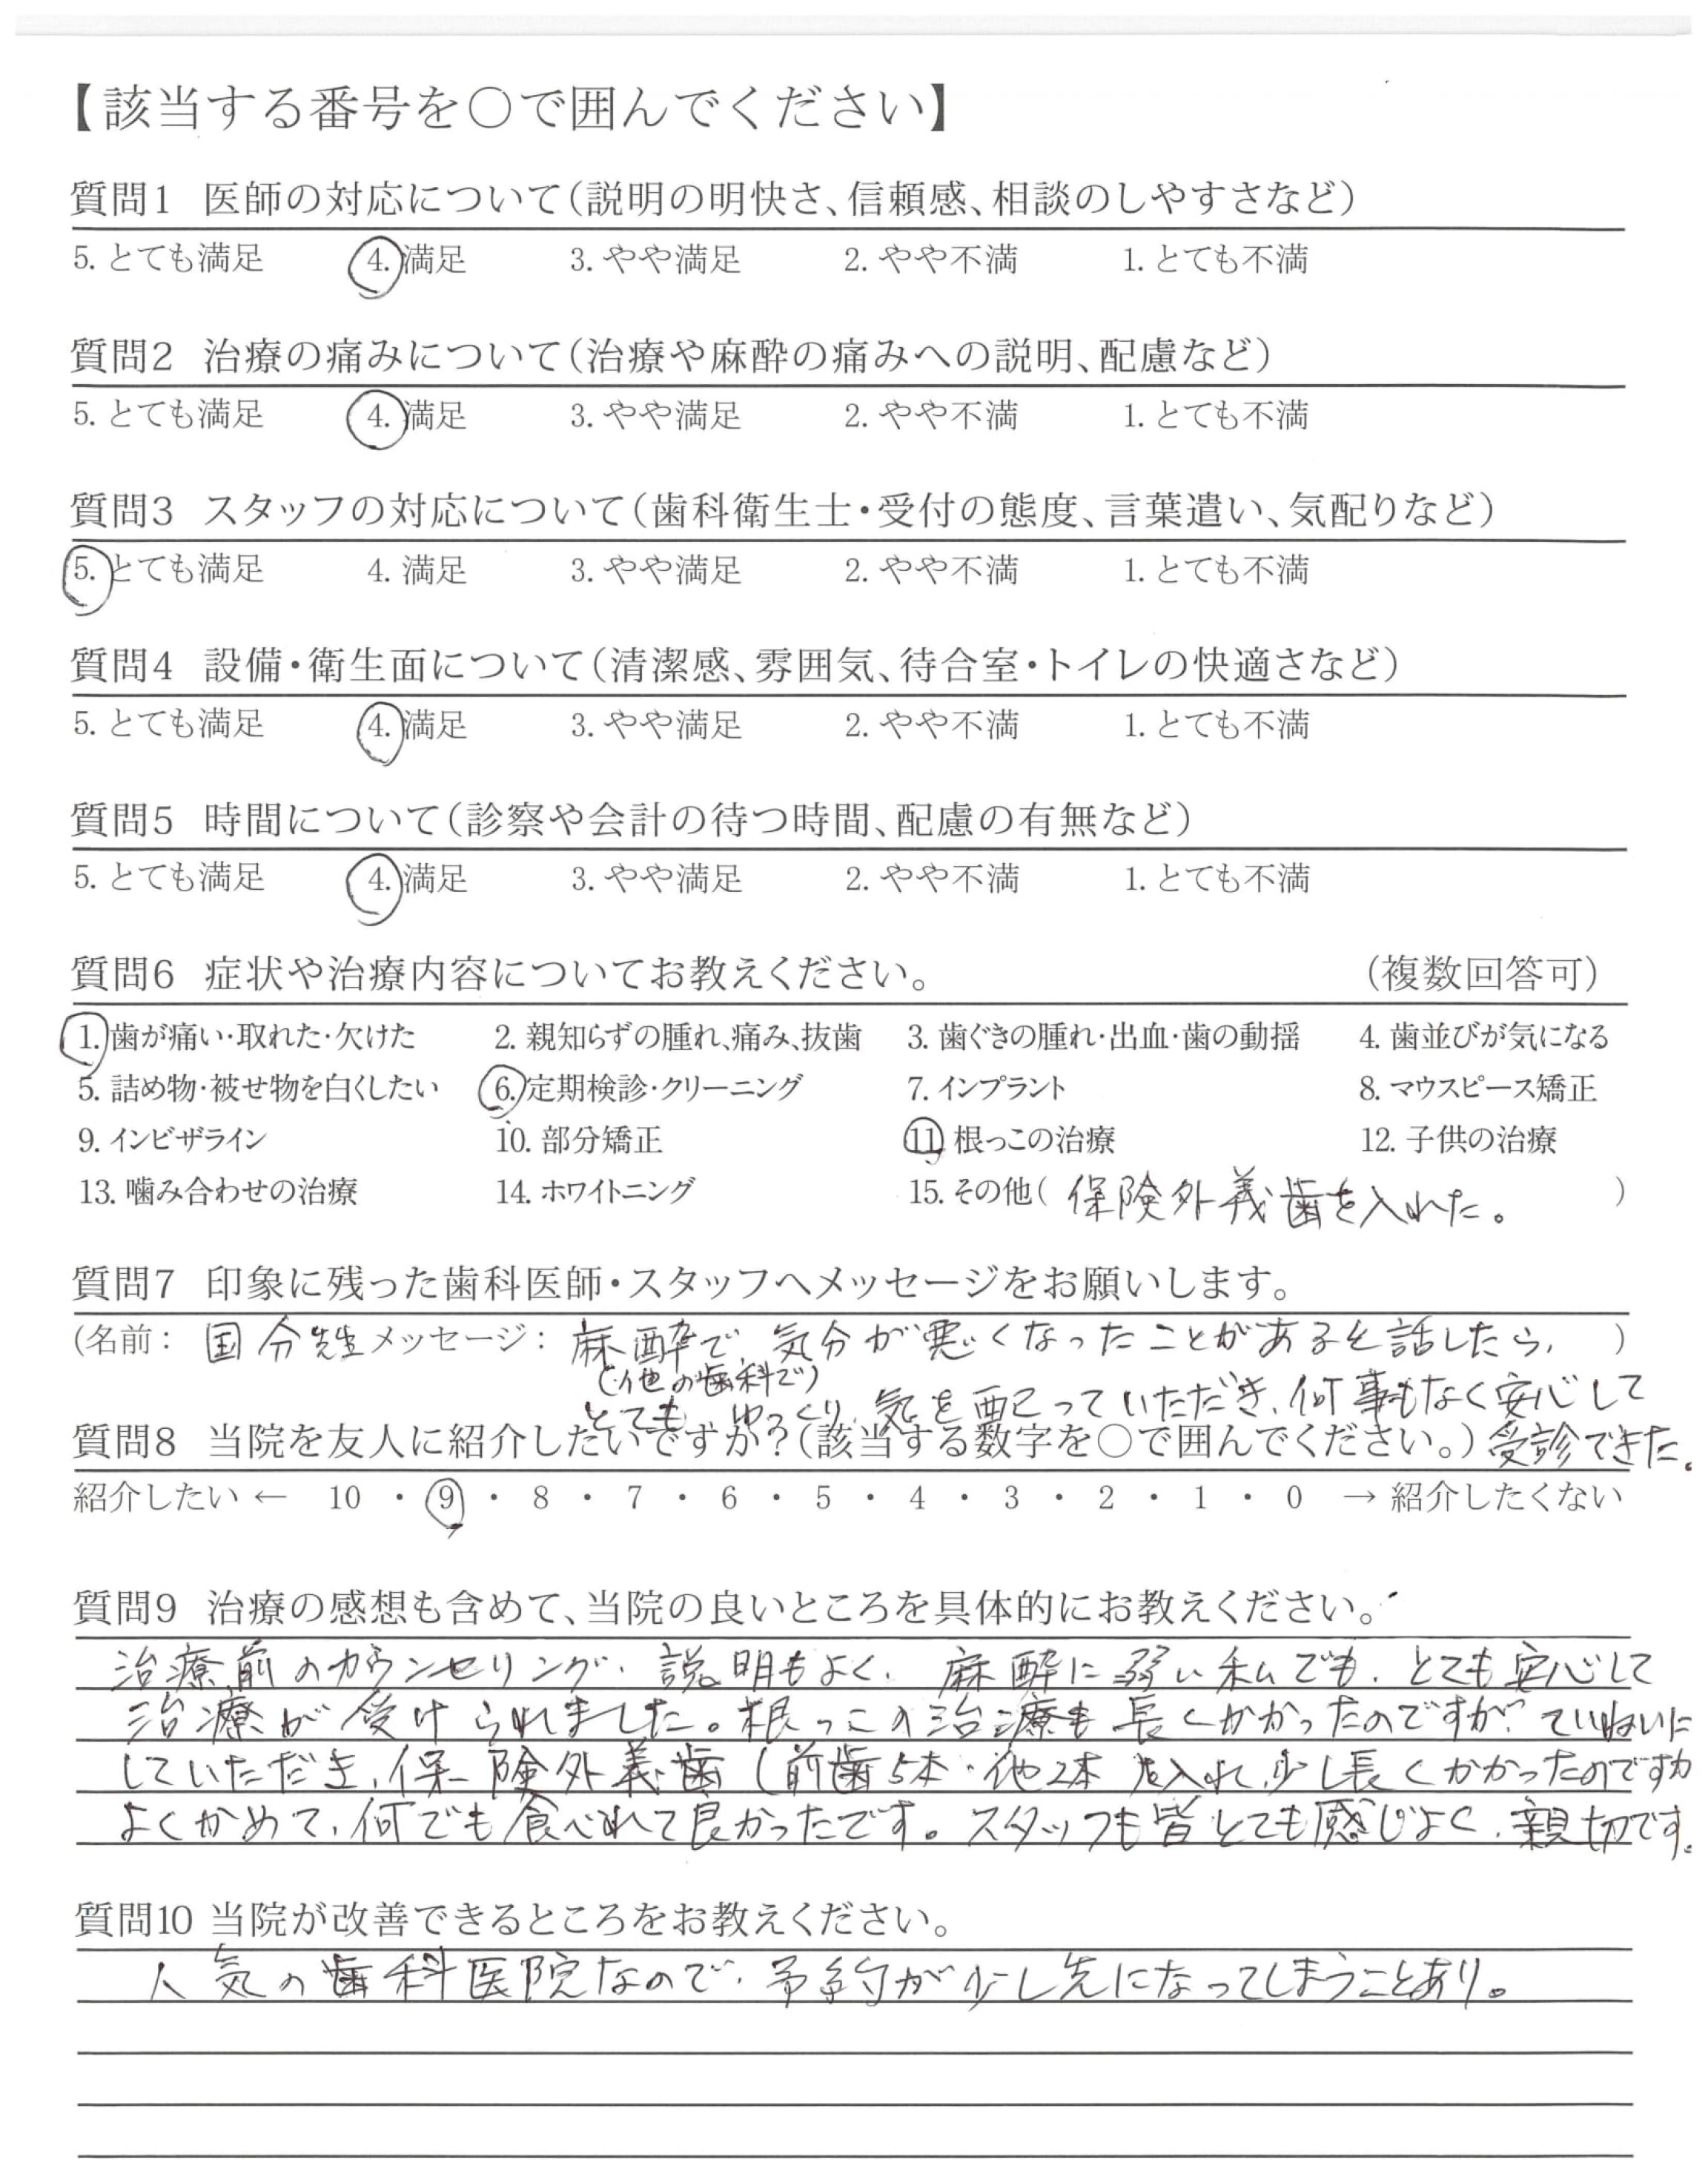 【該当する番号を○で囲んでください】
質問1 医師の対応について(説明の明快さ、信頼感、相談のしやすさなど)
5. とても満足 4. 満足 3. やや満足 2. やや不満 1. とても不満
質問2 治療の痛みについて(治療や麻酔の痛みへの説明、配慮など)
5. とても満足 4. 満足 3. やや満足 2. やや不満 1. とても不満
質問3 スタッフの対応について(歯科衛生士・受付の態度、言葉遣い、気配りなど)
5. とても満足 4. 満足 3. やや満足 2. やや不満 1. とても不満
質問4 設備・衛生面について(清潔感、雰囲気、待合室・トイレの快適さなど)
5. とても満足 4. 満足 3. やや満足 2. やや不満 1. とても不満
質問5 時間について(診察や会計の待つ時間、配慮の有無など)
5. とても満足 4. 満足 3. やや満足 2. やや不満 1. とても不満
質問6 症状や治療内容についてお教えください。 (複数回答可)
1. 歯が痛い・取れた・欠けた 2. 親知らずの腫れ、痛み、抜歯 3. 歯ぐきの腫れ・出血・歯の動揺 4. 歯並びが気になる
5. 詰め物・被せ物を白くしたい 6. 定期検診・クリーニング 7. インプラント 8. マウスピース矯正
9. インビザライン 10. 部分矯正 11. 根っこの治療 12. 子供の治療
13. 噛み合わせの治療 14. ホワイトニング 15. その他( 保険外義歯を入れた。 )
質問7 印象に残った歯科医師・スタッフへメッセージをお願いします。
(名前: 国分先生 メッセージ: 麻酔で、気分が悪くなったことがあると話したら、 )
(他の歯科で)
とても、ゆっくり、気を配っていただき、何事もなく安心して
受診できた。
質問8 当院を友人に紹介したいですか?(該当する数字を○で囲んでください。)
紹介したい ← 10 ・ 9 ・ 8 ・ 7 ・ 6 ・ 5 ・ 4 ・ 3 ・ 2 ・ 1 ・ 0 → 紹介したくない
質問9 治療の感想も含めて、当院の良いところを具体的にお教えください。
治療前のカウンセリング、説明もよく、麻酔に弱い私でも、とても安心して
治療が受けられました。根っこの治療も長くかかったのですが、ていねいに
していただき、保険外義歯(前歯5本・他2本を入れ、少し長くかかったのですが
よくかめて、何でも食べれて良かったです。スタッフも皆とても感じよく、親切です。
質問10 当院が改善できるところをお教えください。
人気の歯科医院なので、予約が少し先になってしまうことあり。